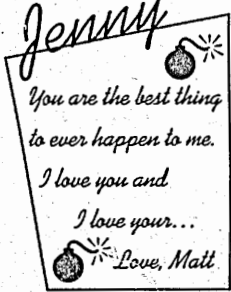 Jenny
You are the best thing
to ever happen to me.
I love you and
I love your...
Love, Matt